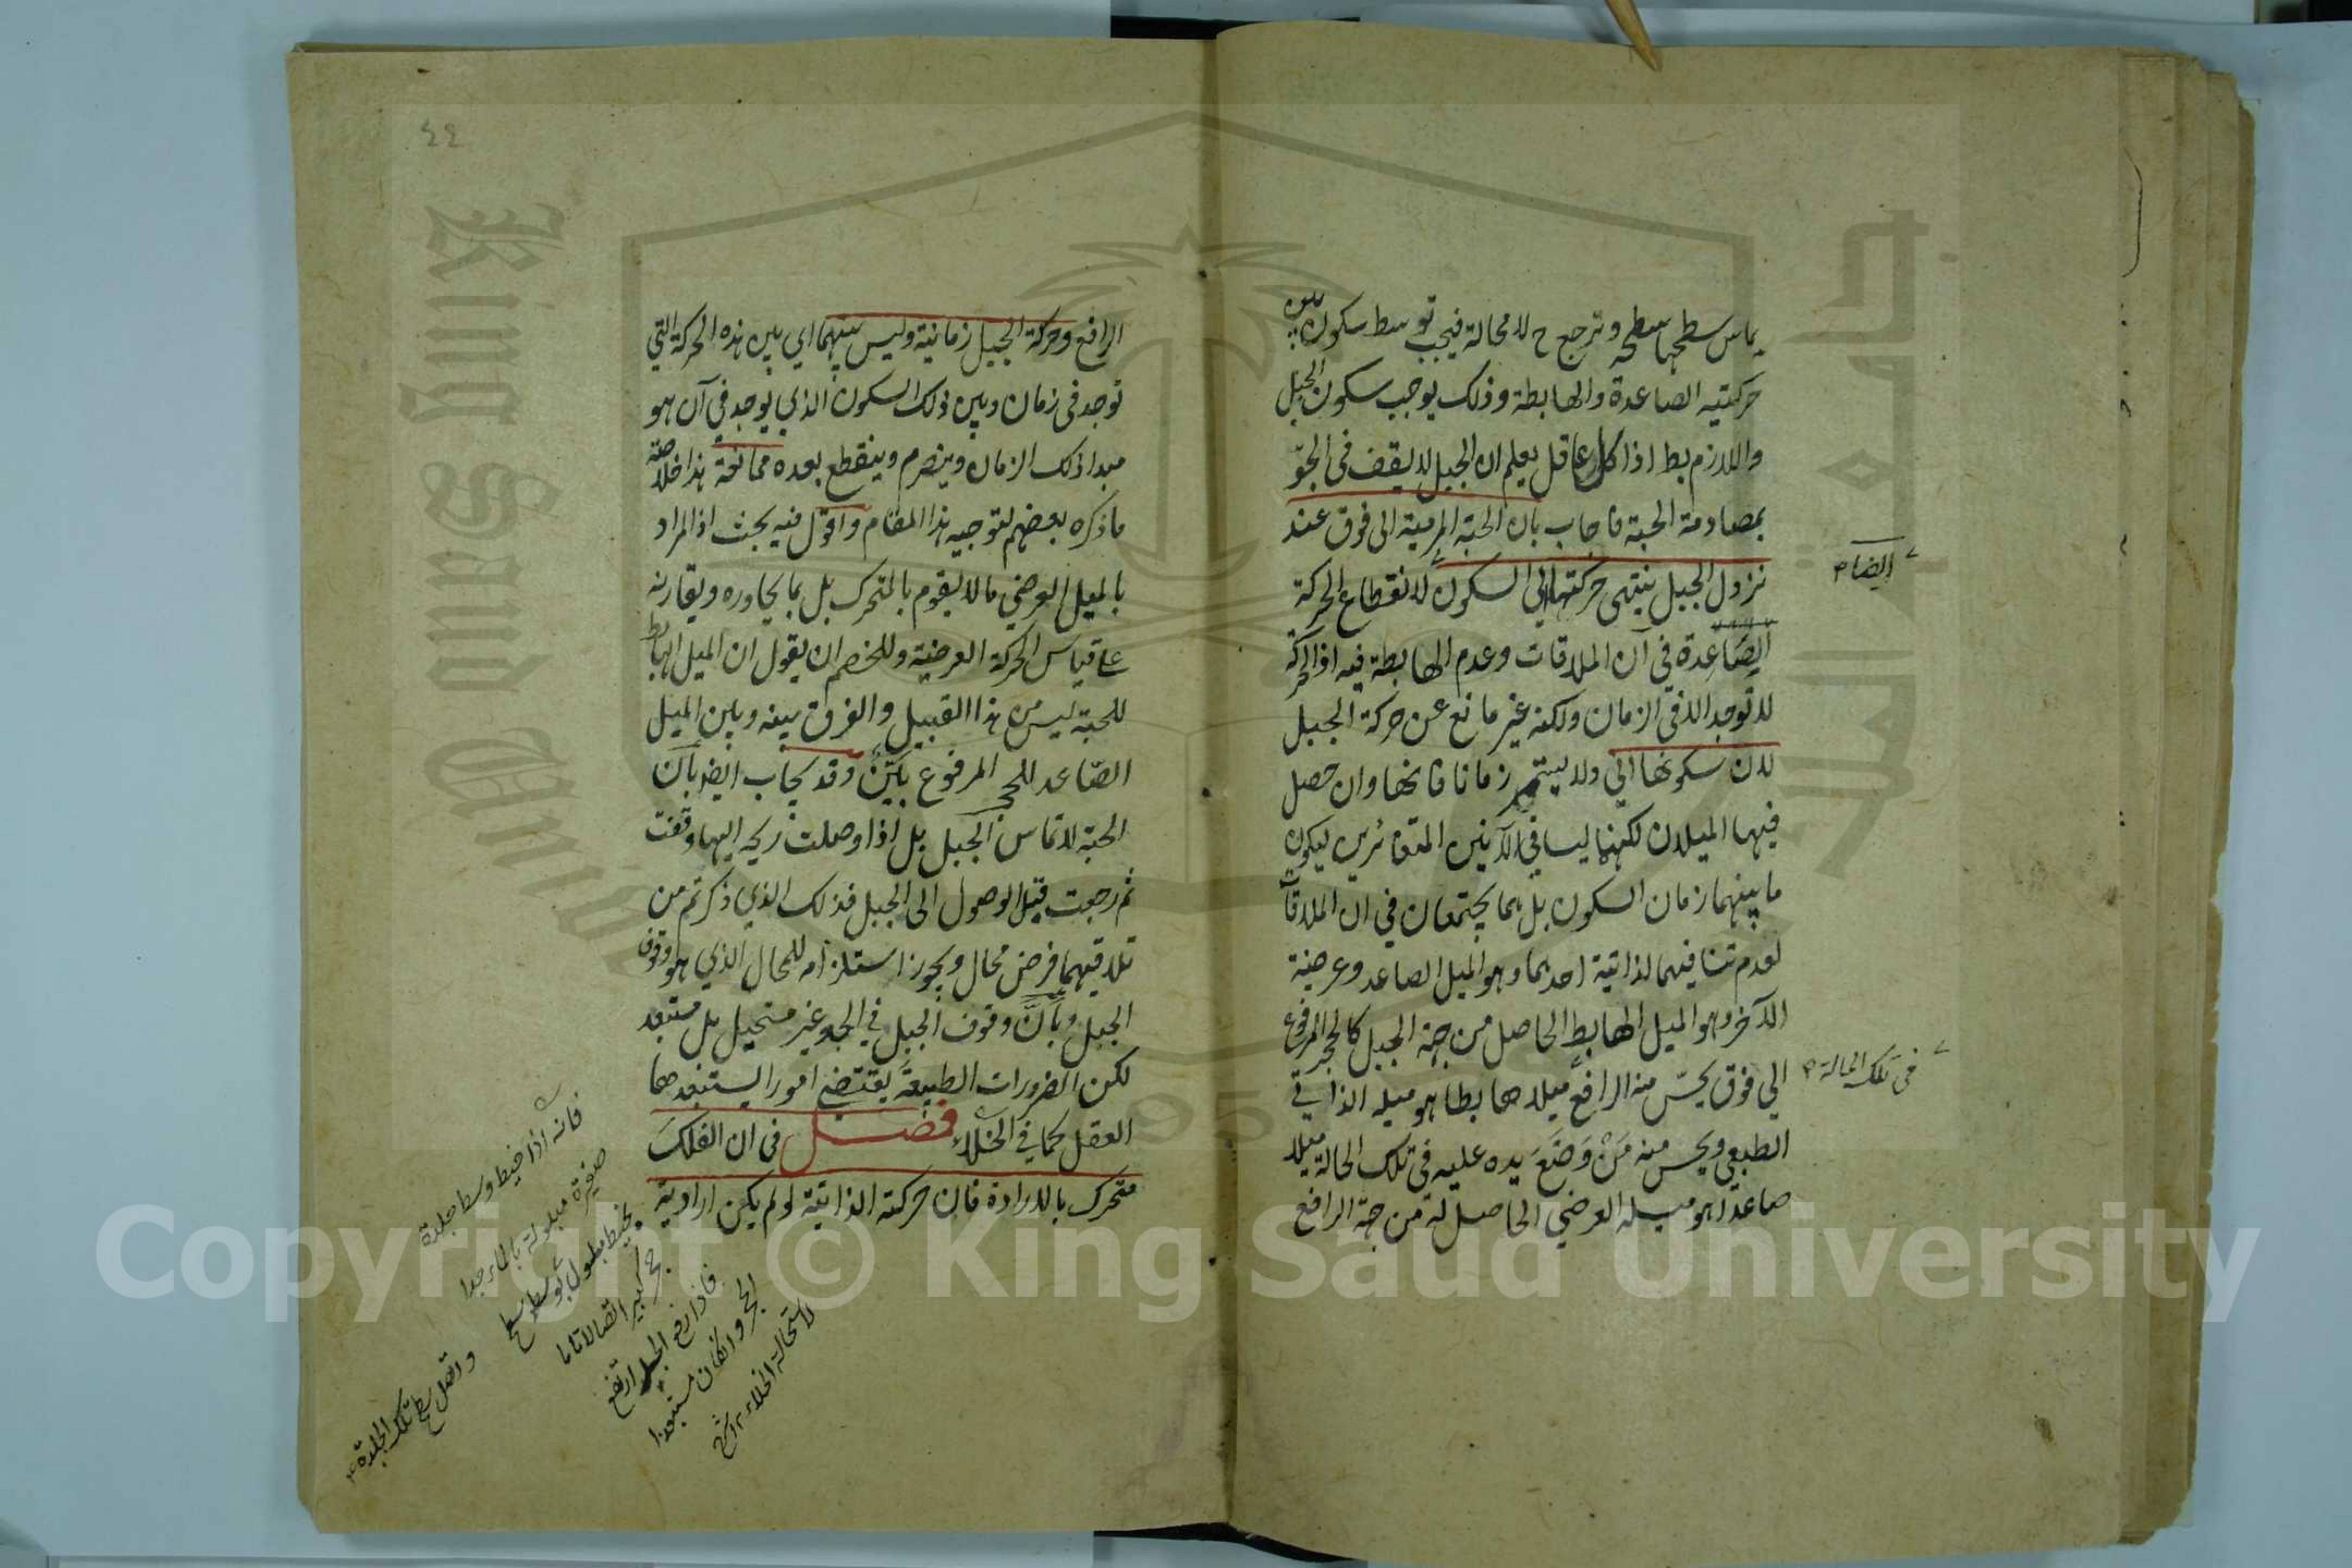 يماس سطحها سطحه وترجع ح لا محالة فيجب توسط سكون بين
حركتيه الصاعدة والهابطة وذلك يوجب سكون الجبل
واللازم بط اذ كل عاقل يعلم ان الجبل لا يقف فى الجوّ
بمصادمة الحبة فاجاب بان الحبة المرمية الى فوق عند
نزول الجبل ينتهى حركتها الى السكون لانقطاع الحركة
الصَّاعِدة في آن الملاقات وعدم الهابطة فيه اذ الحركة
لا توجد الا في الزمان ولكنه غير مانع عن حركة الجبل
لان سكونها انّي ولا يستمر زمانا فانها وان حصل
فيها الميلان لكنهما ليسا في الآنين المتغائرين ليكون
ما بينهما زمان السكون بل هما يجتمعان في ان الملاقاة
لعدم تنافيهما لذاتية احدهما وهو الميل الصاعد وعرضية
الآخر وهو الميل الهابط الحاصل من جهة الجبل كالحجر المرفوع
الي فوق يحسّ منه الرافع ميلا هابطا هو ميله الذاتي
الطبعي ويحس منه مَنْ وَضَعَ يده عليه فى تلك الحالة ميلا
صاعدا هو ميله العرضي الحاصل له من جهة الرافع
ايضا م
فى تلك الحالة م
٤٤
الرافع وحركة الجبل زمانية وليس بينهما اي بين هذه الحركة التي
توجد فى زمان وبين ذلك السكون الذي يوجد في آن هو
مبدا ذلك الزمان وينصرم وينقطع بعده ممانعة هذا خلاصة
ما ذكره بعضهم لتوجيه هذا المقام واقول فيه بحث اذ المراد
بالميل العرضي ما لا يقوم بالمتحرك بل بما يجاوره ويقارنه
على قياس الحركة العرضية وللخصم ان يقول ان الميل الهابط
للحبة ليس من هذا القبيل والفرق بينه وبين الميل
الصّاعد للحجر المرفوع بَيِّنٌ وقد يجاب ايضا بان
الحبة لا تماس الجبل بل اذا وصلت ريحه اليها وقفت
ثم رجعت قبل الوصول الى الجبل فذلك الذي ذكرتم من
تلاقيهما فرض محال ويجوز استلزامه للمحال الذي هو وقوف
الجبل وبأنّ وقوف الجبل في الجو غير مستحيل بل مستبعد
لكن الضرورات الطبيعة يقتضي امورا يستبعدها
العقل كما في الخلاء فصل فى ان الفلك
متحرك بالارادة فان حركته الذاتية لو لم يكن ارادية
فانه اذا خيط وسط جلدة
صغيرة مبلولة بالماء جدا
بخيط مطول بوسط سطح
واتصل سطح تلك الجلدة م
حجر كبير اتصالا تاما
فاذا رفع الجلد ارتفع
الحجر وان كان مستبعدا
لاستحالة الخلاء
Copyright © King Saud University